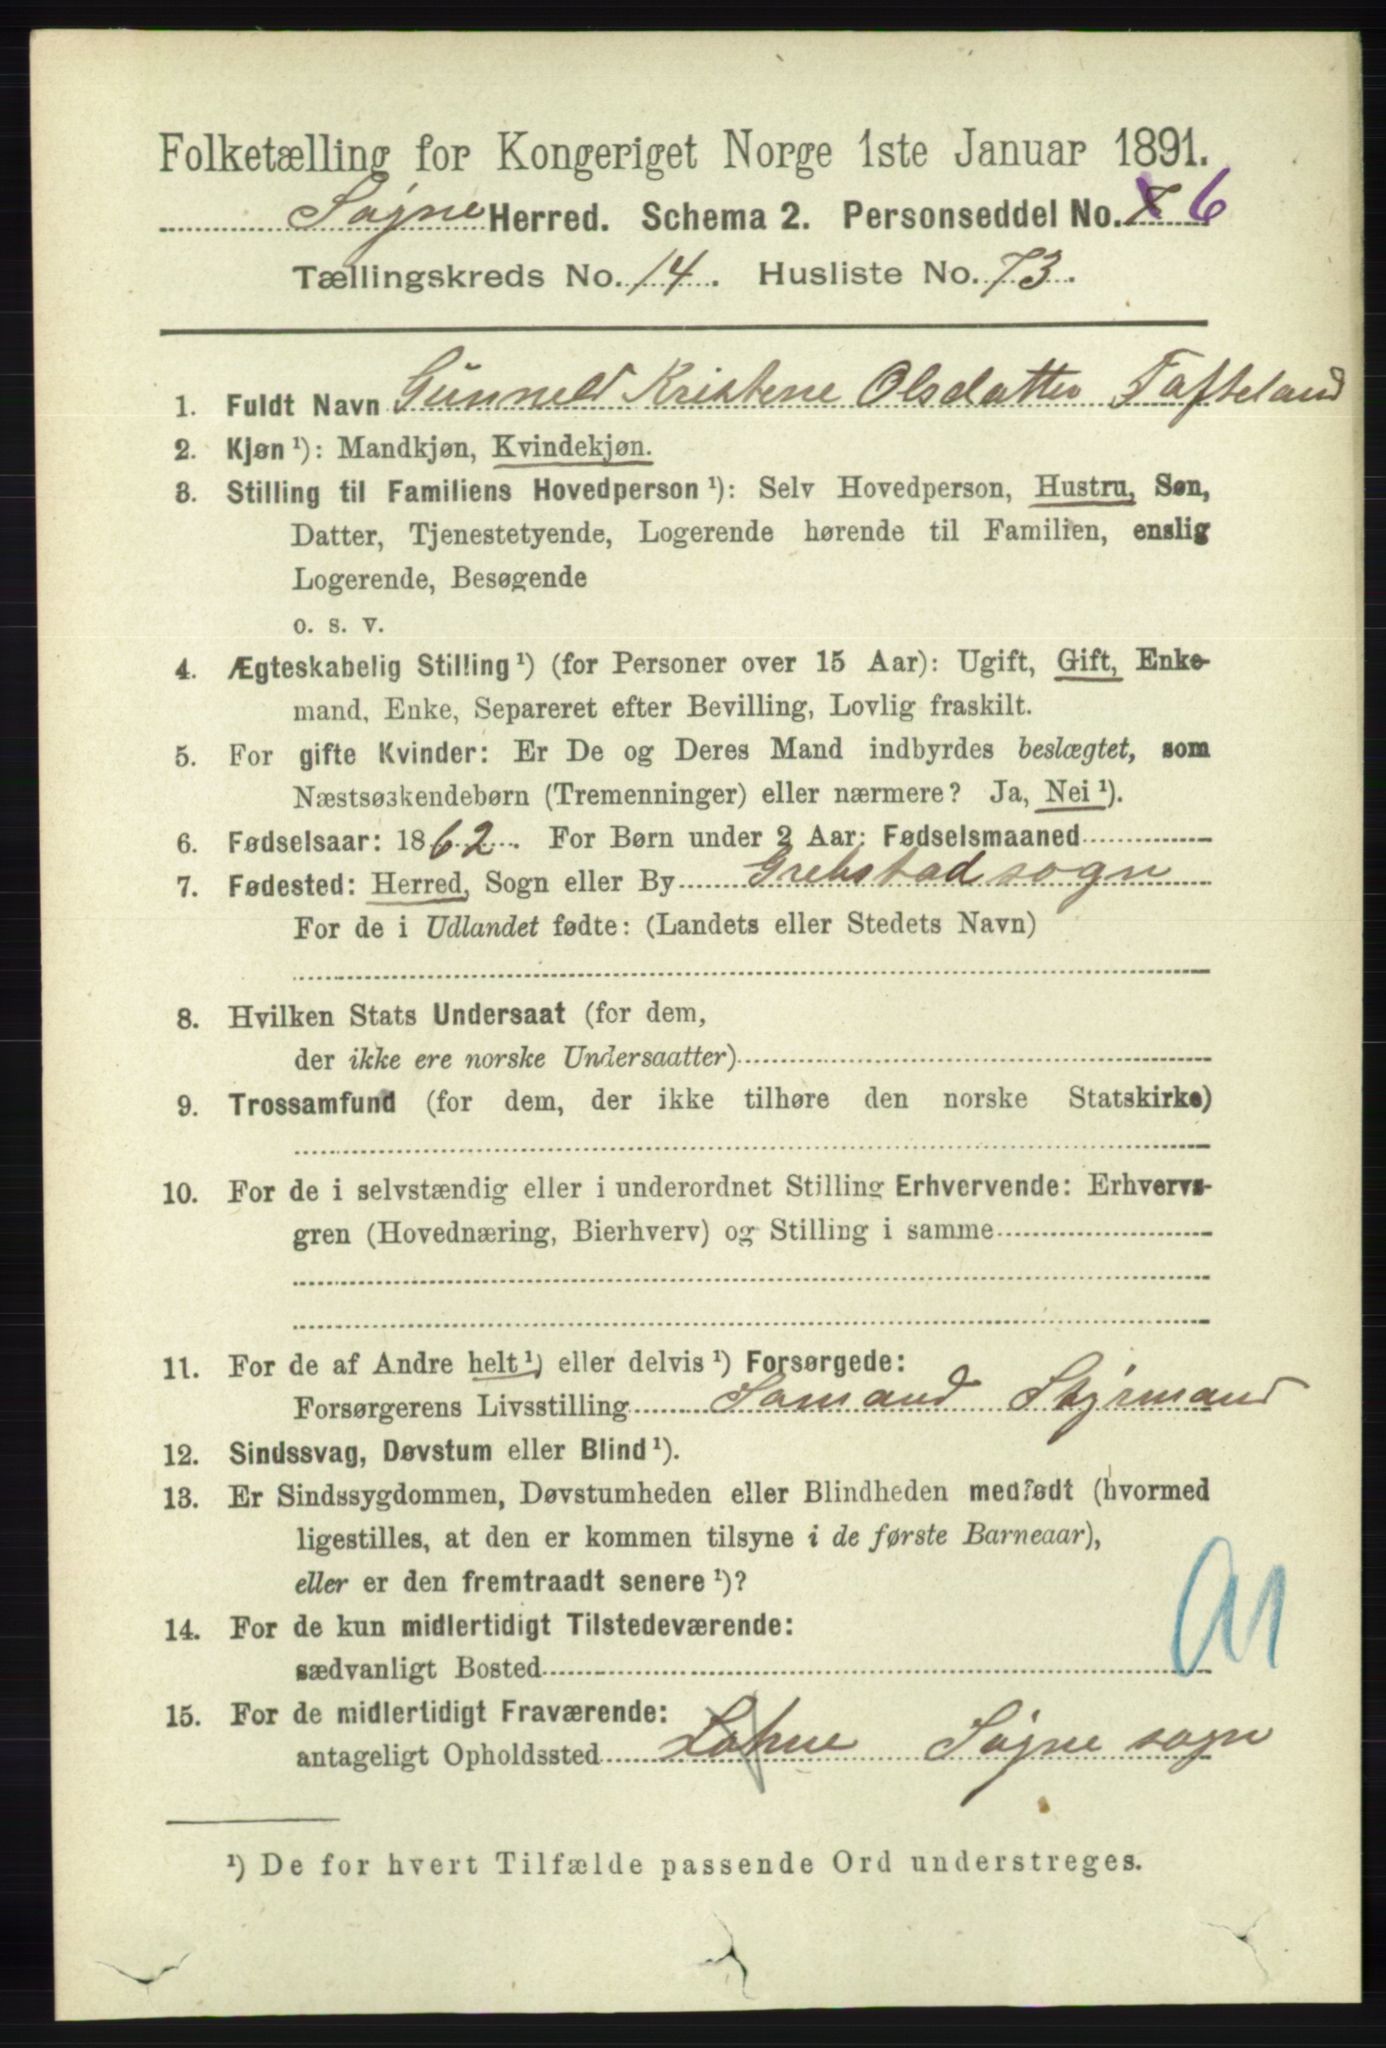 Folketælling for Kongeriget Norge 1ste Januar 1891.
Søgne Herred. Schema 2. Personseddel No. 7 6
Tællingskreds No. 14. Husliste No. 73.
1. Fuldt Navn Gunneld Kristene Olsdatter Tofteland
2. Kjøn ¹): Mandkjøn, Kvindekjøn.
3. Stilling til Familiens Hovedperson ¹): Selv Hovedperson, Hustru, Søn,
Datter, Tjenestetyende, Logerende hørende til Familien, enslig
Logerende, Besøgende
o. s. v.
4. Ægteskabelig Stilling ¹) (for Personer over 15 Aar): Ugift, Gift, Enke-
mand, Enke, Separeret efter Bevilling, Lovlig fraskilt.
5. For gifte Kvinder: Er De og Deres Mand indbyrdes beslægtet, som
Næstsøskendebørn (Tremenninger) eller nærmere? Ja, Nei ¹).
6. Fødselsaar: 1862. For Børn under 2 Aar: Fødselsmaaned
7. Fødested: Herred, Sogn eller By Grebstad sogn
For de i Udlandet fødte: (Landets eller Stedets Navn)
8. Hvilken Stats Undersaat (for dem,
der ikke ere norske Undersaatter)
9. Trossamfund (for dem, der ikke tilhøre den norske Statskirke)
10. For de i selvstændig eller i underordnet Stilling Erhvervende: Erhvervs-
gren (Hovednæring, Bierhverv) og Stilling i samme
11. For de af Andre helt ¹) eller delvis ¹) Forsørgede:
Forsørgerens Livsstilling Sømand Styrmand
12. Sindssvag, Døvstum eller Blind ¹).
13. Er Sindssygdommen, Døvstumheden eller Blindheden medfødt (hvormed
ligestilles, at den er kommen tilsyne i de første Barneaar),
eller er den fremtraadt senere ¹)?
14. For de kun midlertidigt Tilstedeværende:
sædvanligt Bosted
15. For de midlertidigt Fraværende:
antageligt Opholdssted Lohne Søgne sogn
¹) De for hvert Tilfælde passende Ord understreges.